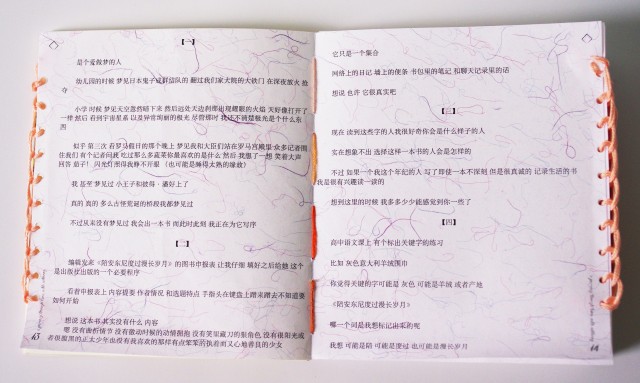 【一】
是个爱做梦的人
幼儿园的时候 梦见日本鬼子成群结队的 翻过我们家大院的大铁门 在深夜放火 抢
夺
小学时候 梦见天空忽然暗下来 然后远处天边刹那出现耀眼的火焰 天好像打开了
一样 然后 看到宇宙星系 以及异常绚丽的极光 尽管那时 我还不清楚极光是个什么东
西
似乎 第三次 看罗马假日的那个晚上 梦见我和大臣们站在罗马宫殿里 众多记者围
住我们 有个记者问我 吃过那么多蔬菜你最喜欢的是什么 然后 我想了一想 笑着大声
回答 茄子！ 闪光灯照得我睁不开眼 （也可能是睡得太熟的缘故）
我甚至 梦见过 小王子和彼得·潘好上了
真的 真的 多么古怪荒诞的桥段我都梦见过
不过从来没有梦见过 我会出一本书 而此时此刻 我正在为它写序
【二】
编辑发来《陪安东尼度过漫长岁月》的图书申报表 让我仔细 填好之后给她 这个
是出版社出版的一个必要程序
看着申报表上 内容提要 作者情况 和选题特点 手指头在键盘上蹭来蹭去不知道要
如何开始
想说 这本书 其实没有什么 内容
嗯 没有曲折情节 没有激动时候的动情拥抱 没有笑里藏刀的狠角色 没有很阳光或
者很腹黑的正太少年也没有我喜欢的那样有点笨笨的执着而又心地善良的少女
63
它只是一个集合
网络上的日记 墙上的便条 书包里的笔记 和聊天记录里的话
想说 也许 它很真实吧
【三】
现在 读到这些字的人我很好奇你会是什么样子的人
实在想象不出 选择这样一本书的人会是怎样的
不过 如果一个我这个年纪的人 写了即使一本不深刻 但是很真诚的 记录生活的书
我是很有兴趣读一读的
想到这里的时候 我多多少少能感觉到你一些了
【四】
高中语文课上 有个标出关键字的练习
比如 灰色意大利羊绒围巾
你觉得关键的字可能是 灰色 可能是羊绒 或者产地
《陪安东尼度过漫长岁月》
哪一个词是我想标记出来的呢
我想 可能是陪 可能是度过 也可能是漫长岁月
64